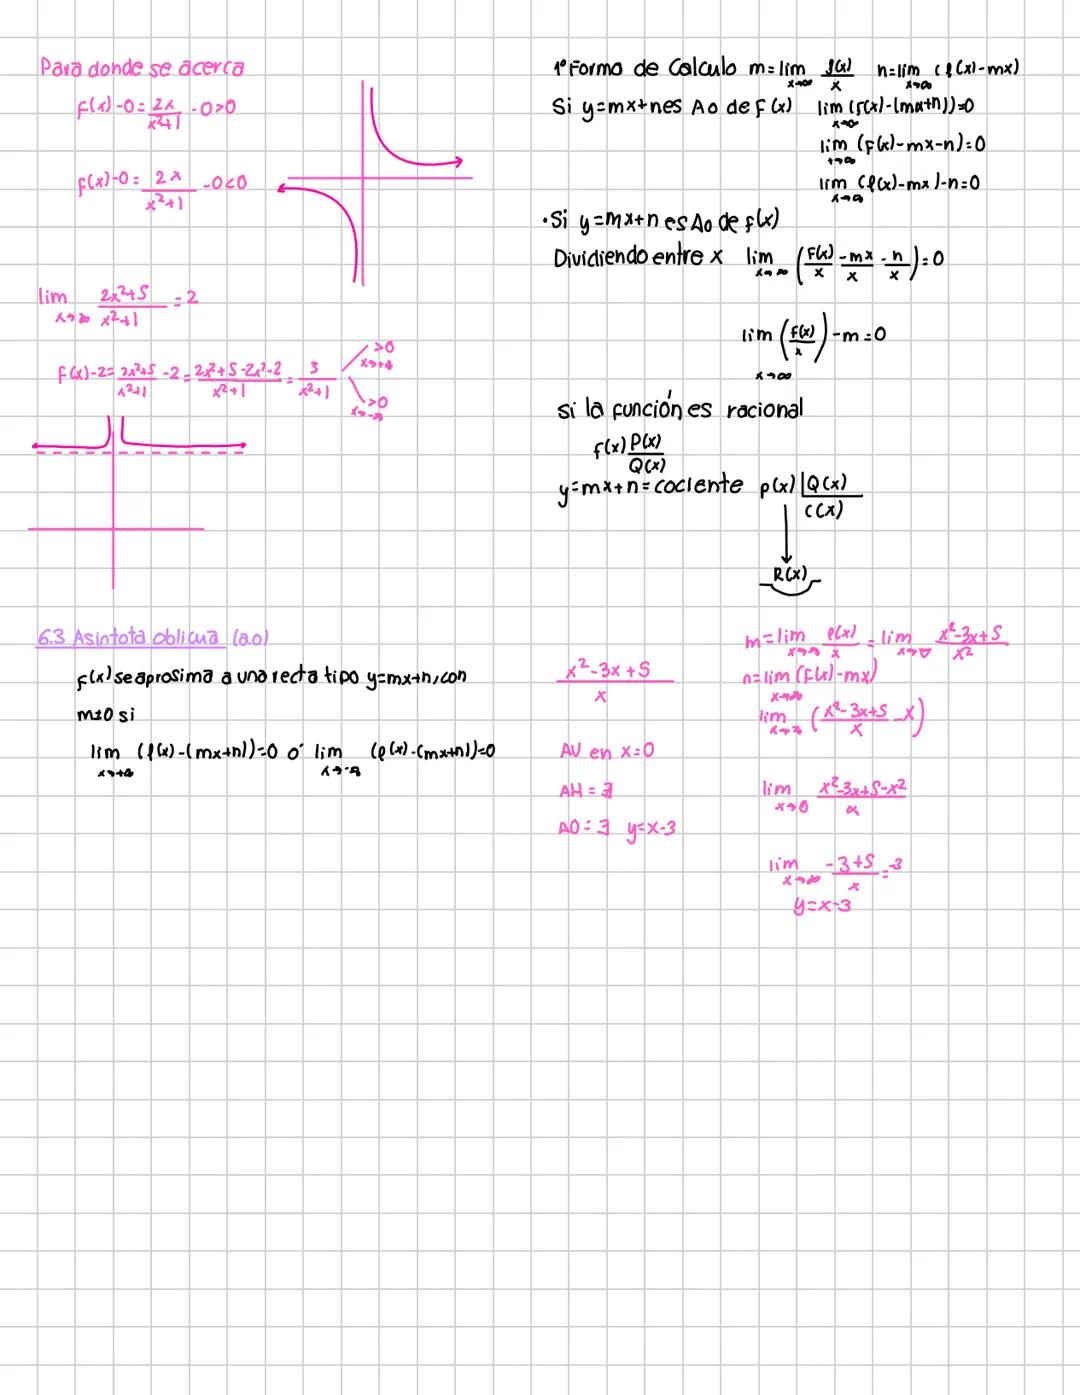 Para donde se acerca
f(x)-0= 2x/x²+1 -0>0
f(x)-0= 2x/x²+1 -0<0
lim x→∞ 2x²+5/x²+1 = 2
f(x)-2= 2x²+5/x²+1 -2= 2x²+5-2x²-2/x²+1 = 3/x²+1
>0 x→+∞
>0 x→-∞
6.3 Asintota oblicua (a.o)
f(x) se aprosima a una recta tipo y=mx+n, con
m≠0 si
lim x→+∞ (f(x)-(mx+n))=0 ó lim x→-∞ (f(x)-(mx+n))=0
1ª Forma de Calculo m=lim x→∞ f(x)/x n=lim x→∞ (f(x)-mx)
Si y=mx+n es Ao de f(x) lim x→∞ (f(x)-(mx+n))=0
lim x→∞ (f(x)-mx-n)=0
lim x→∞ (f(x)-mx)-n=0
·Si y=mx+n es Ao de f(x)
Dividiendo entre x lim x→∞ (f(x)/x - mx/x - n/x)=0
lim x→∞ (f(x)/x) -m=0
si la función es racional
f(x) P(x)/Q(x)
y=mx+n=cociente p(x) |Q(x)
C(x)
R(x)
x²-3x+5/x
AV en x=0
AH = ∄
AO = ∃ y=x-3
m=lim x→∞ f(x)/x = lim x→∞ x²-3x+5/x²
n=lim x→∞ (f(x)-mx)
lim x→∞ (x²-3x+5/x -x)
lim x→∞ x²-3x+5-x²/x
lim x→∞ -3+5/x =-3
y=x-3